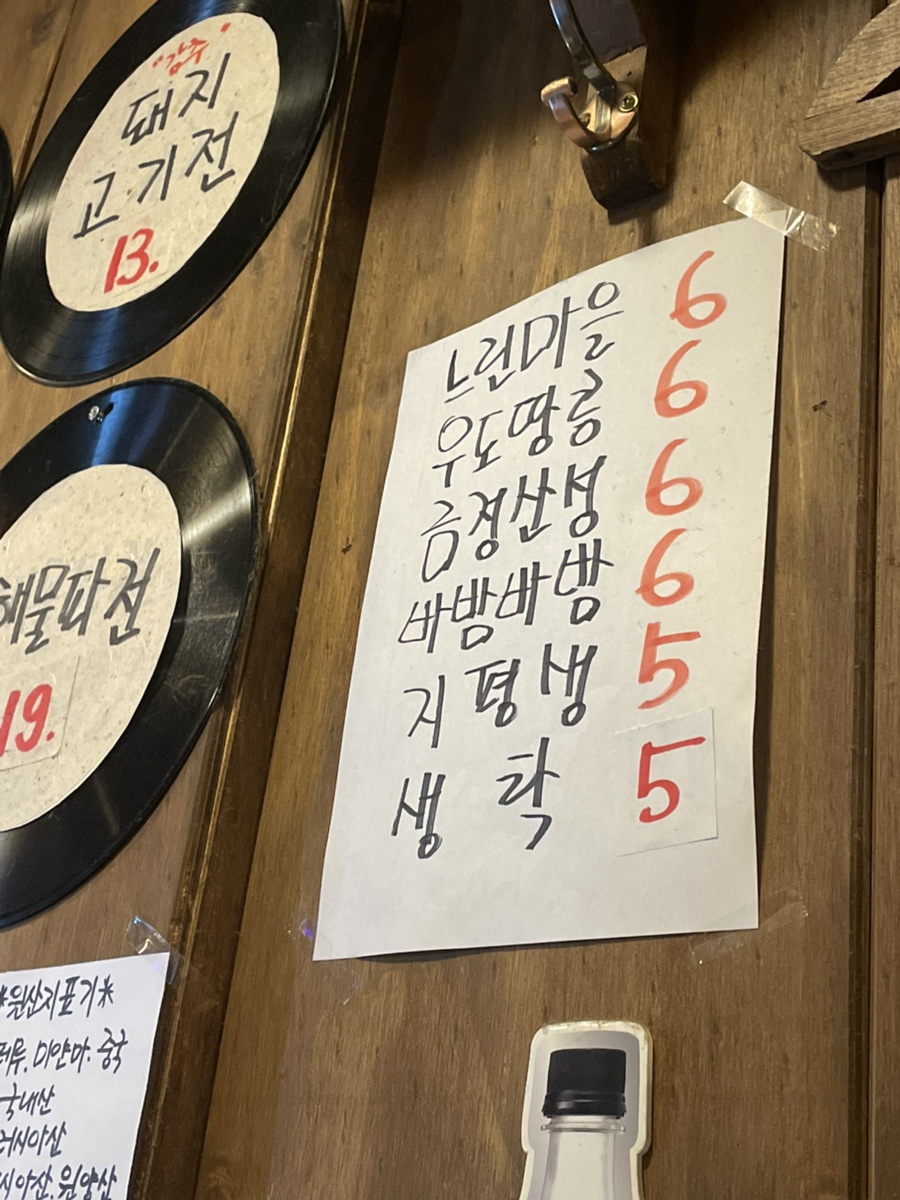 "강추"
돼지
고기전
13.
해물파전
19.
느린마을 6
우도땅콩 6
금정산성 6
바밤바밤 6
지평생 5
생탁 5
*원산지표기*
미얀마. 중국
국내산
러시아산
원양산